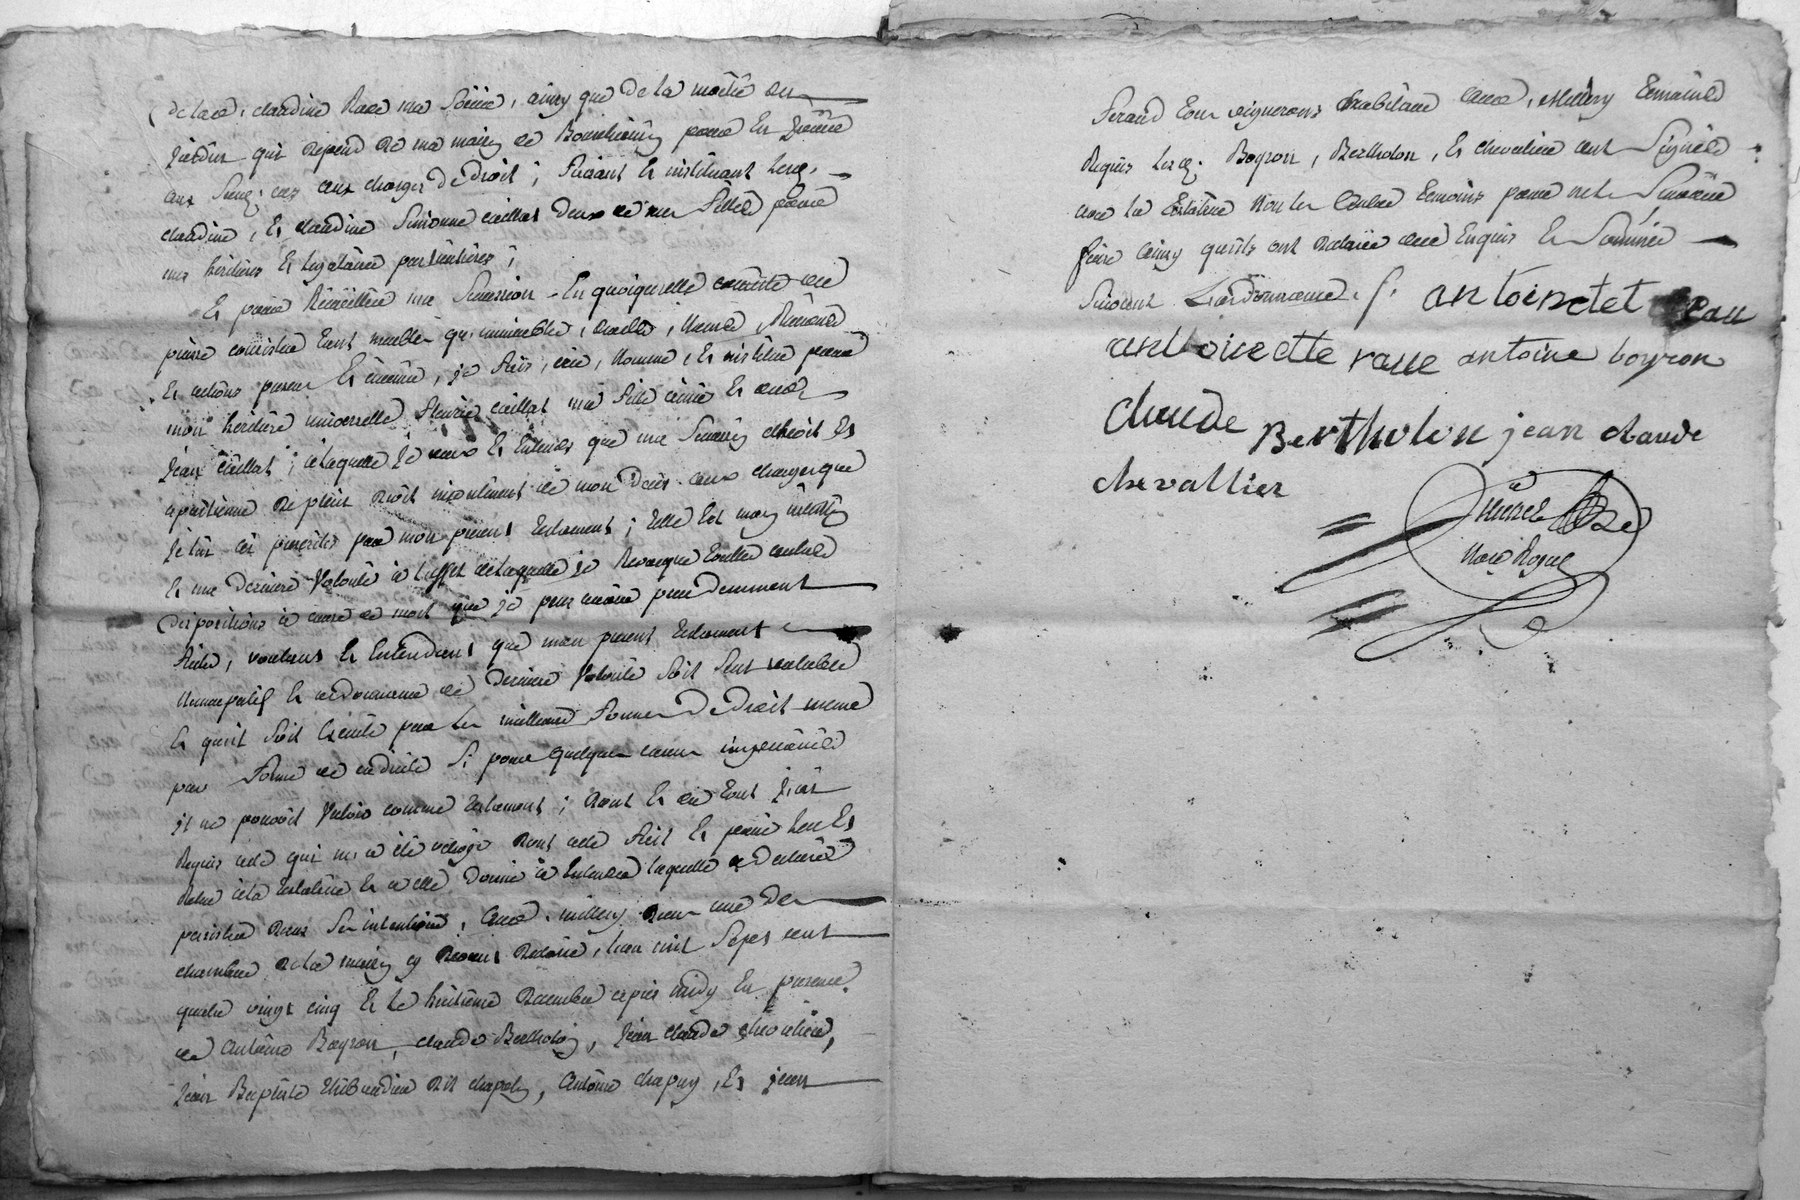 de lad. claudine Rave ma Sœur, ainsy que de la moitié du
Jardin qui dépend de ma maison de
aux charges de droit ; faisant et instituant lesd.
claudine, et claudine Simonne caillat deux de mes filles pour
mes héritières et légataires particulières ;
Et pour Recueillir ma Succession En quoiqu'elle consiste ou
puisse consister tant meubles qu'immeubles, droits, Noms,
et actions presens et avenir, je fais, crée, Nomme, et institue pour
mon héritière universelle fleurie caillat ma fille ainée et dud.
Jean caillat ; à laquelle je veux et Entends que ma Succession et
apartienne de plein droit incontinent de mon Deces aux charges que
je luy ai prescrites par mon present testament ; telle Est mon intention
Et ma derniere Volonté à l'effet de laquelle je Revoque toutes autres
Dispositions à cause de mort que je peux avoir precedemment
faites, voulant et Entendant que mon present testament
Nuncupatif et ordonnance de derniere Volonté soit seul valable
Et qu'il soit Executé par les meilleures formes De Droit meme
par forme de codicile Si pour quelques causes imprevües
il ne pouvoit Valoir comme testament ; dont et du tout j'ai
Requis acte qui m'a été octroyé Dont acte fait et
à la testatrice et à elle donné à Entendre laquelle a declaré
persister dans Ses intentions, aud. millery dans une des
chambres de la maison L'an mil Sept cent
quatre vingt cinq et le huitieme decembre apres midy En presence
de Antoine Boyron, claude Bertholon, Jean claude chevalier,
Jean Baptiste Thibaudier dit chapely, Antoine chapuy, Et jean
ferand tous vignerons habitans aud. Millery temoins
Requis lesq. Boyron, Bertholon, et chevalier ont Signé
avec la testatrice Non les autres temoins pour ne le Scavoir
faire ainsy qu'ils ont declaré de ce Enquis et Sommés
Suivant L'ordonnance.
antoinette rave antoine boyron
claude Bertholon jean claude
chevallier
Note Royal